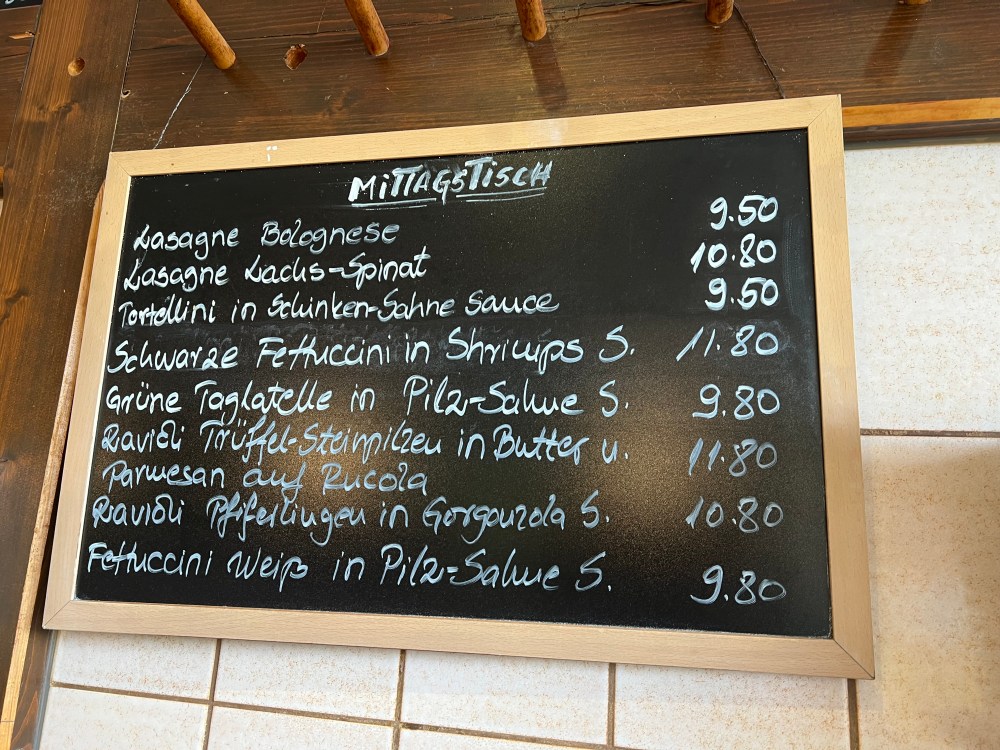 MiTTAGSTiSCH
Lasagne Bolognese 9.50
Lasagne Lachs-Spinat 10.80
Tortellini in Schinken-Sahne Sauce 9.50
Schwarze Fettuccini in Shrimps S. 11.80
Grüne Taglatelle in Pilz-Sahne S. 9.80
Ravioli Trüffel-Steinpilzen in Butter u. 11.80
Parmesan auf Rucola
Ravioli Pfiferlingen in Gorgonzola S. 10.80
Fettuccini Weiß in Pilz-Sahne S. 9.80